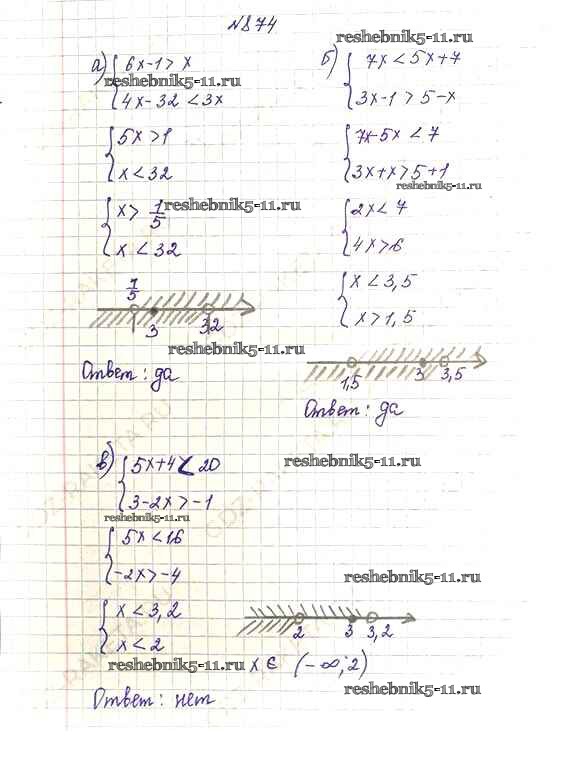 №874
reshebnik5-11.ru
а) { 6x-1>x
reshebnik5-11.ru
4x-32<3x
{ 5x>1
x<32
{ x> 1/5
reshebnik5-11.ru
x<32
1/5 3 32
reshebnik5-11.ru
Ответ: да
б) { 7x<5x+7
3x-1>5-x
{ 7x-5x<7
3x+x>5+1
reshebnik5-11.ru
{ 2x<7
4x>6
{ x<3,5
x>1,5
1,5 3 3,5
Ответ: да
в) { 5x+4<20
reshebnik5-11.ru
3-2x>-1
reshebnik5-11.ru
{ 5x<16
-2x>-4
reshebnik5-11.ru
{ x<3,2
x<2
2 3 3,2
reshebnik5-11.ru
x∈ (-∞;2)
reshebnik5-11.ru
Ответ: нет